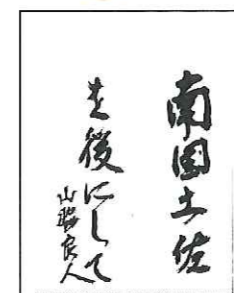 南国土佐
を後にして
山脇良人